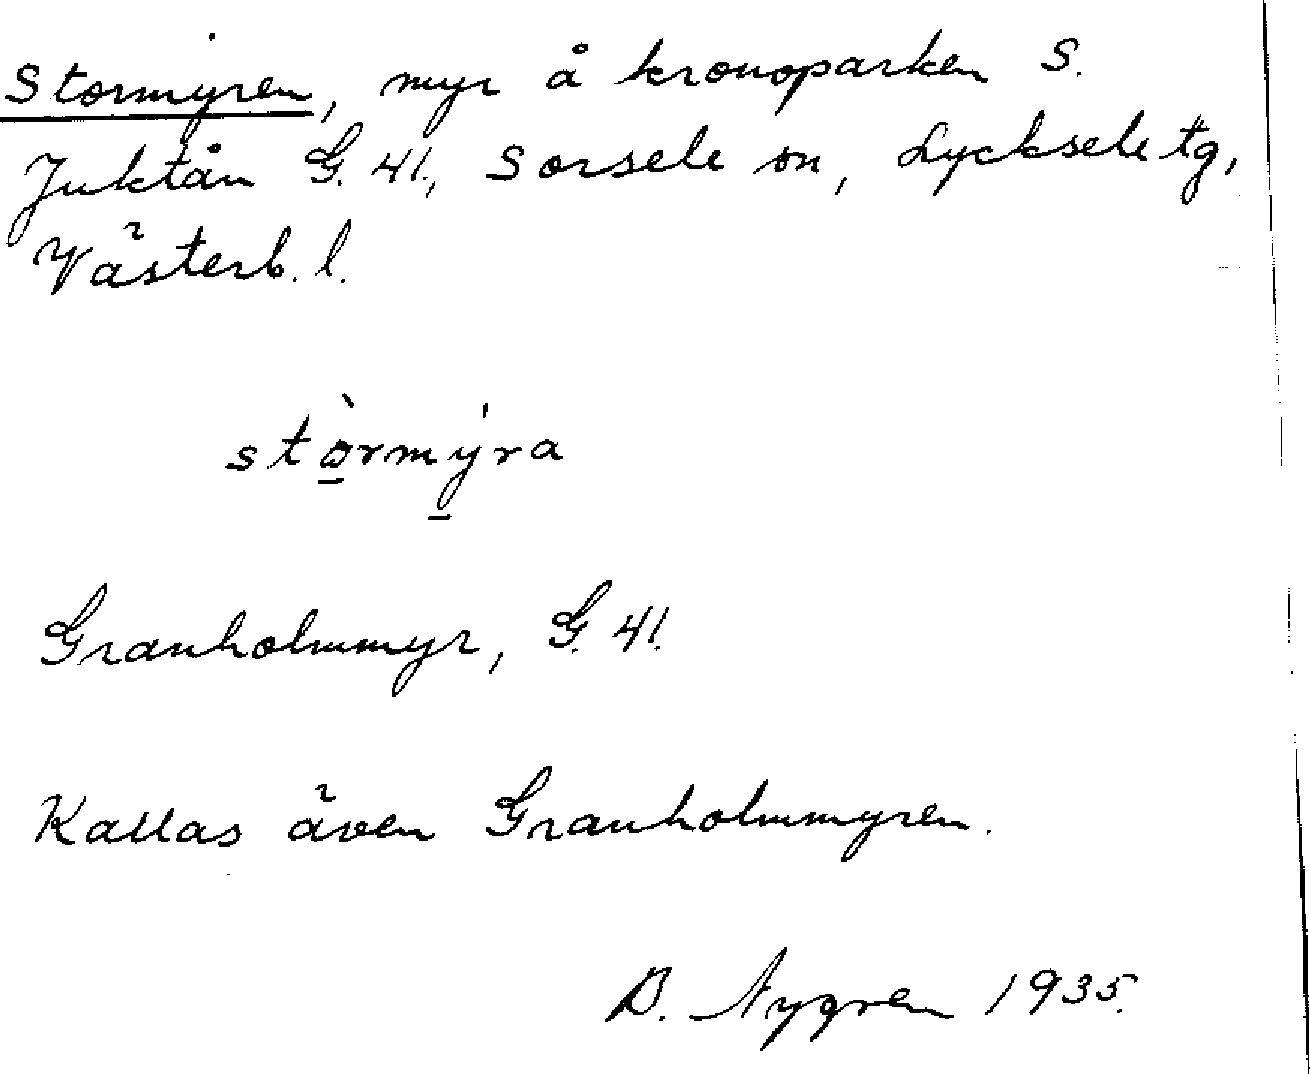 Stormyren, myr å kronoparken S.
Juktån G. 41, Sorsele sn, Lycksele tg,
Västerb. l.
stòrmýra
Granholmmyr, G. 41.
Kallas även Granholmmyren.
B. Nygren 1935.